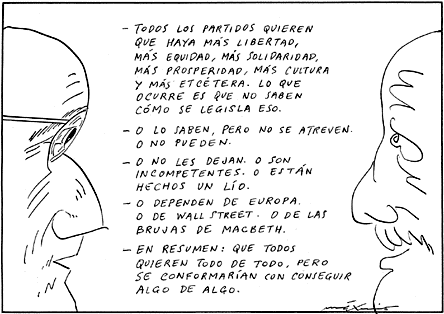 - TODOS LOS PARTIDOS QUIEREN
QUE HAYA MÁS LIBERTAD,
MÁS EQUIDAD, MÁS SOLIDARIDAD,
MÁS PROSPERIDAD, MÁS CULTURA
Y MÁS ETCÉTERA. LO QUE
OCURRE ES QUE NO SABEN
CÓMO SE LEGISLA ESO.
- O LO SABEN, PERO NO SE ATREVEN.
O NO PUEDEN.
- O NO LES DEJAN. O SON
INCOMPETENTES. O ESTÁN
HECHOS UN LÍO.
- O DEPENDEN DE EUROPA.
O DE WALL STREET. O DE LAS
BRUJAS DE MACBETH.
- EN RESUMEN: QUE TODOS
QUIEREN TODO DE TODO, PERO
SE CONFORMARÍAN CON CONSEGUIR
ALGO DE ALGO.
máximo